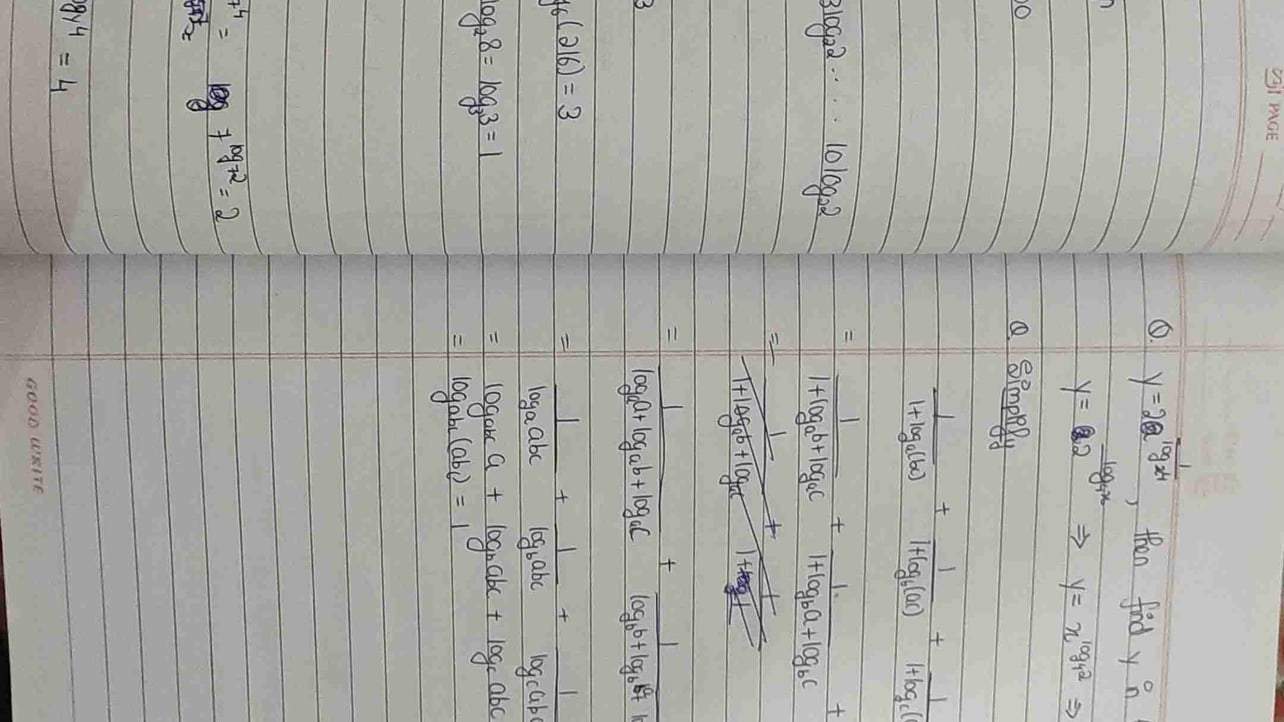 PAGE
3log₂2 . . . 10log₂2
(216) = 3
log₂8 = log₃3 = 1
= 7^log₇2 = 2
4 = 4
Q y = 2^(1/logₓ4), then find y in
y = 2^log₄x ⇒ y = x^log₄2 ⇒
Q Simplify
1/(1+logₐ(bc)) + 1/(1+log_b(ac)) + 1/(1+log_c(
= 1/(1+logₐb+logₐc) + 1/(1+log_b a+log_b c) +
= 1/(1+logₐb+logₐc) + 1/(1+
= 1/(logₐa+logₐb+logₐc) + 1/(log_b b+log_b a+
= 1/(logₐabc) + 1/(log_b abc) + 1/(log_c abc
= log_abc a + log_b abc + log_c abc
= log_abc (abc) = 1
GOOD WRITE